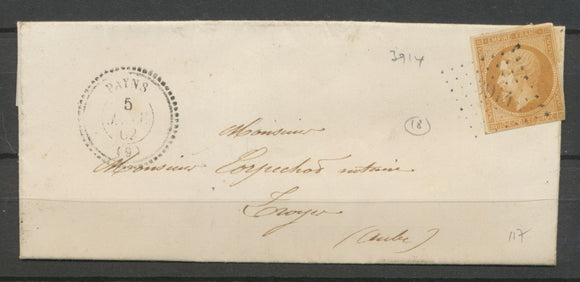 3914
EMPIRE FRANC
PAYNS
5
62
(9)
(18)
Monsieur
Monsieur Corpechot notaire
Troyes
(Aube)
117